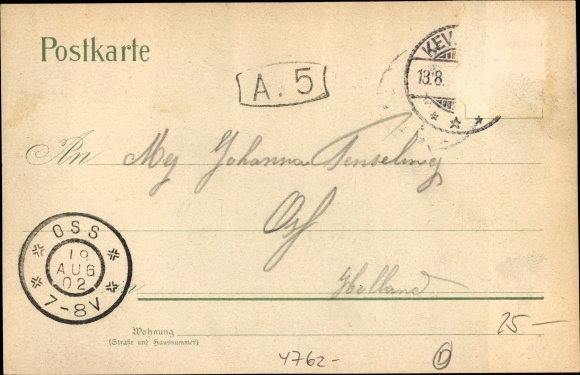 Postkarte
A. 5
KEV
13.8.
An Mej Johanna Tenseling
Oss
Holland
OSS
19
AUG
02
7-8V
Wohnung
(Straße und Hausnummer)
25-
4762-
D